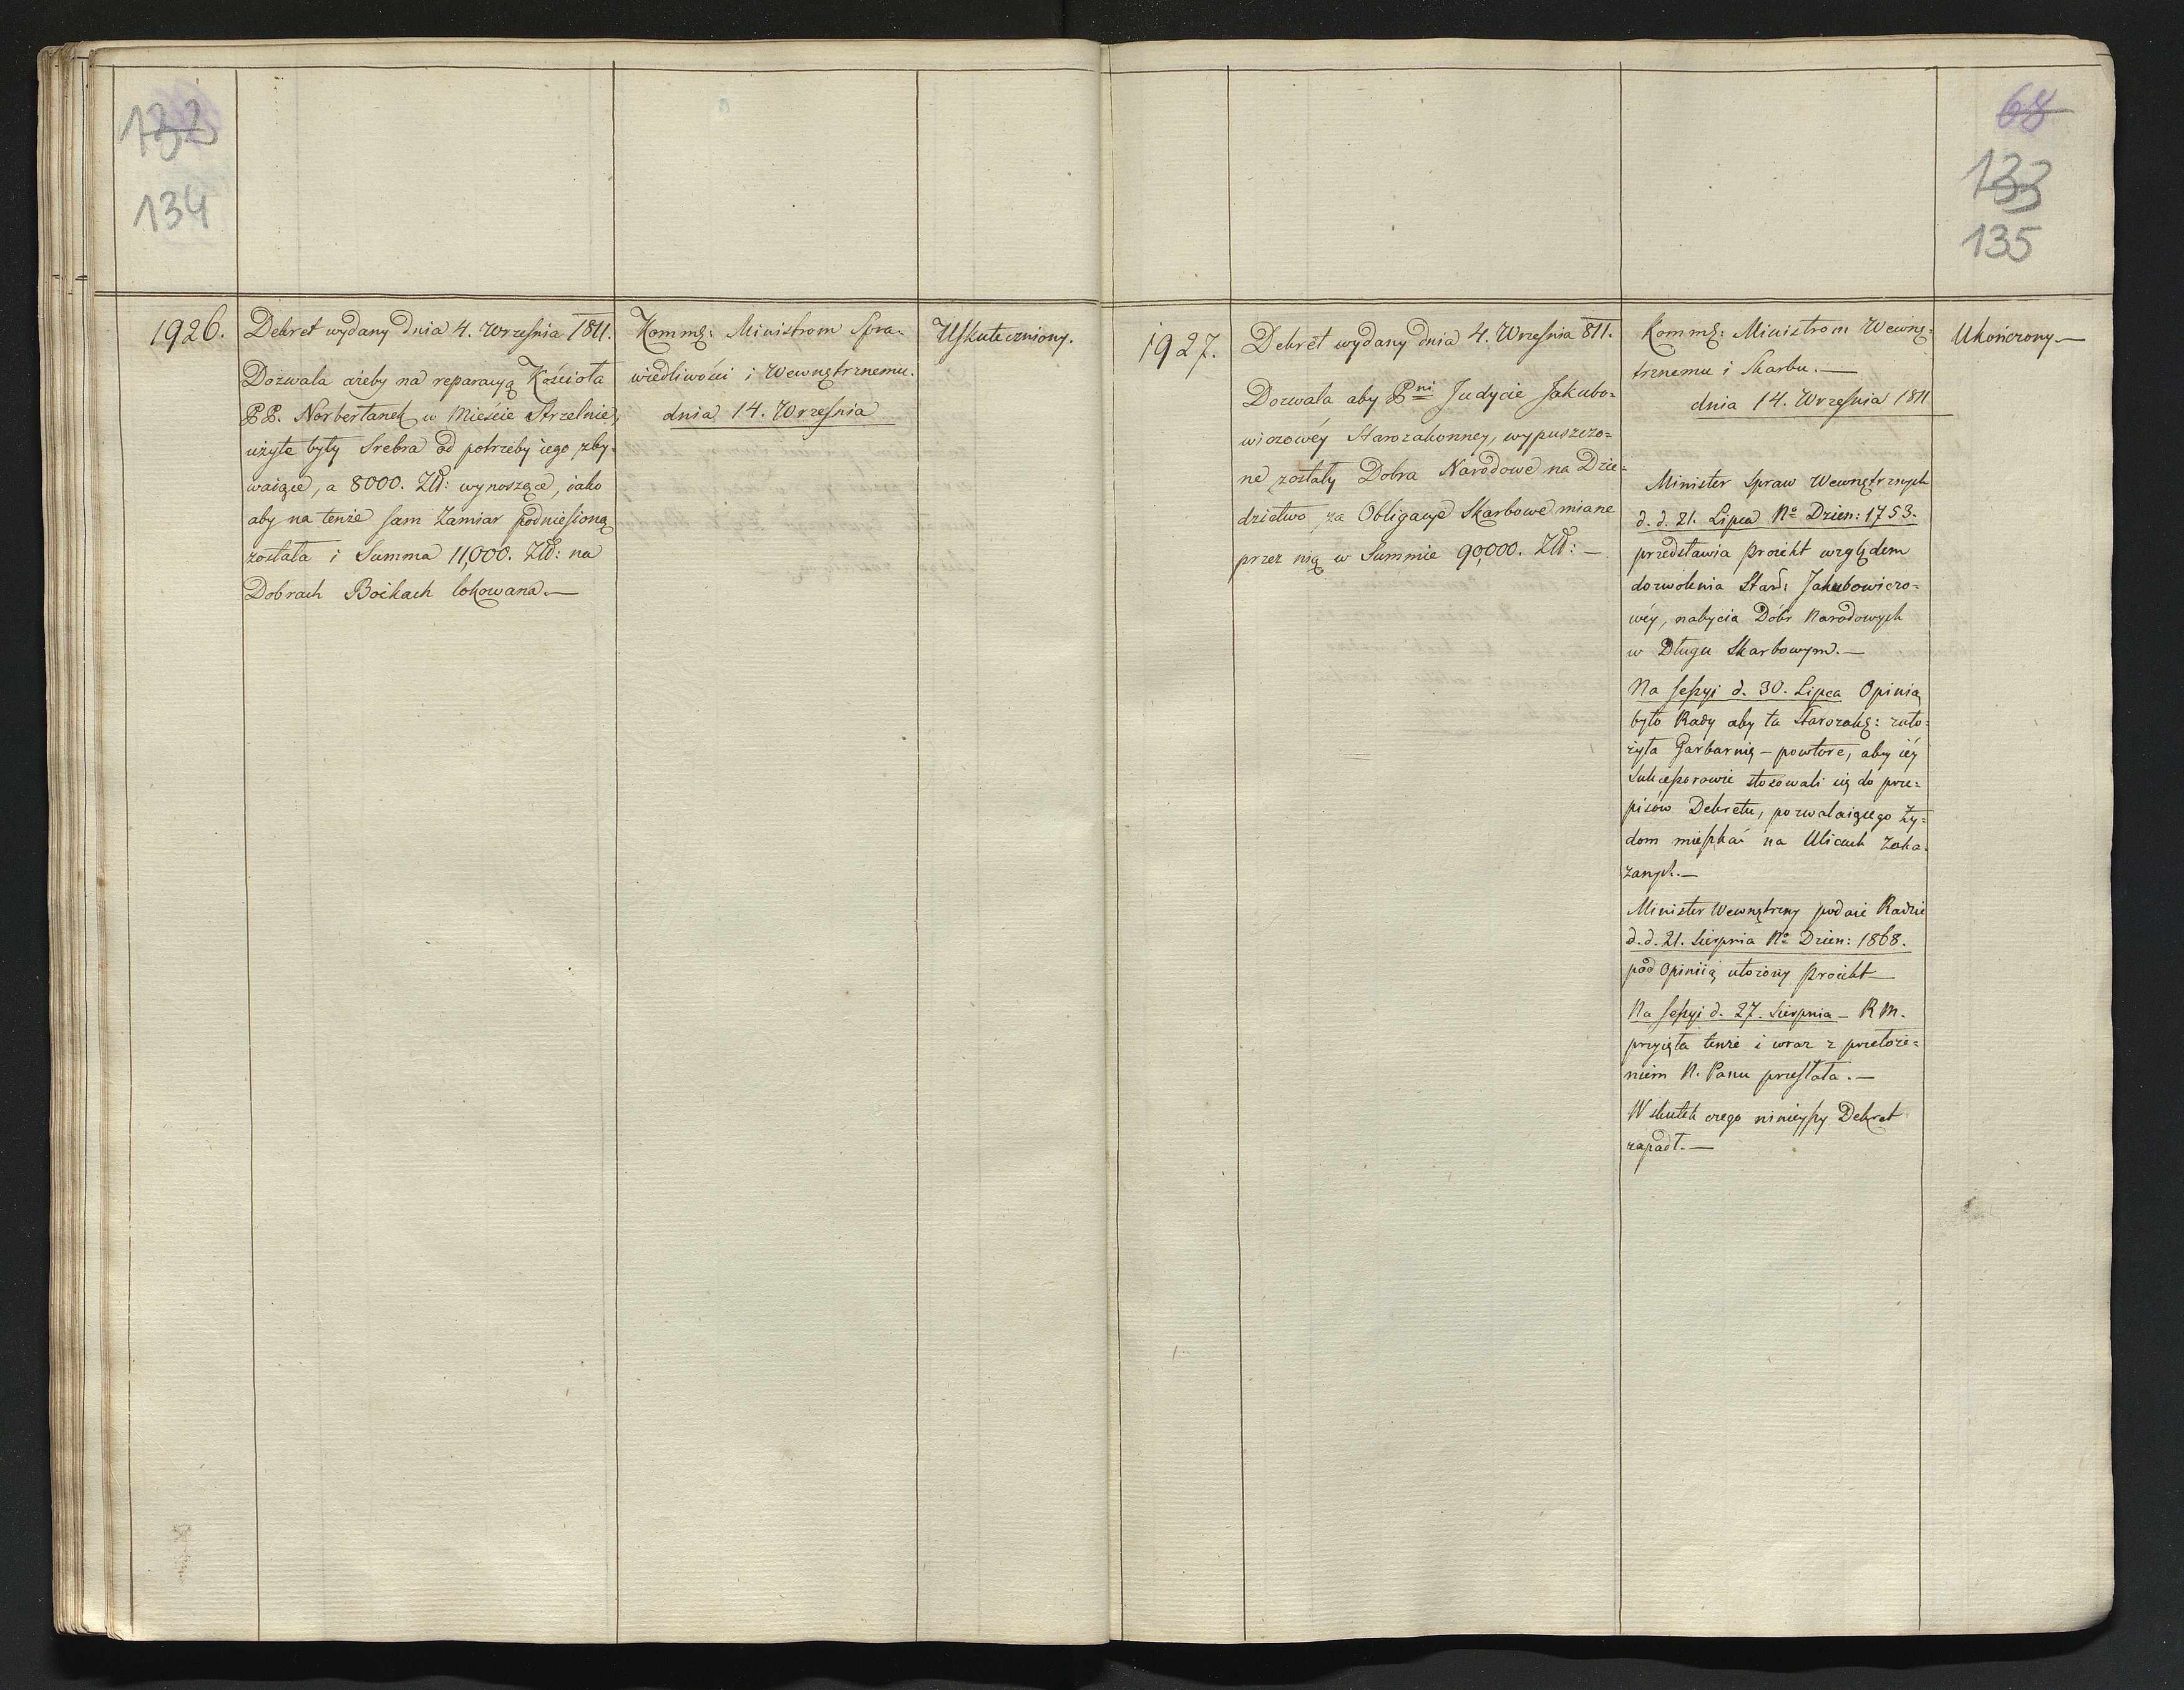 132
134
1926.
Dekret wydany dnia 4. Września 1811.
Dozwala ażeby na reparacyą Kościoła
PP. Norbertanek w Mieście Strzelnie,
użyte były Srebra od potrzeby iego zby-
waiące, a 8000. Złł: wynoszące, iako
aby na tenże sam Zamiar podniesioną
została i Summa 11,000. Złł: na
Dobrach Boikach lokowana.—
Kommę: Ministrom Spra-
wiedliwości i Wewnętrznemu.
dnia 14. Września
Uskuteczniony.
68
133
135
1927.
Dekret wydany dnia 4. Września 811.
Dozwala aby Pni Judycie Jakubo=
wiczowéy Starozakonney, wypuszczo=
ne zostały Dobra Narodowe na Dzie=
dzictwo za Obligacye Skarbowe miane
przez nią w Summie 90,000. Złł: —
Kommę: Ministrom Wewnę=
trznemu i Skarbu.—
dnia 14. Września 1811
Minister Spraw Wewnętrznych
d. d. 21. Lipca No Dzien: 1753.
przedstawia proiekt względem
dozwolenia Star: Jakubowiczo=
wéy, nabycia Dóbr Narodowych
w Długu Skarbowym.—
Na Sessyi d. 30. Lipca Opinią
było Rady aby ta Starozakę: zało=
żyła Garbarnię — powtóre, aby iéy
Sukcessorowie stosowali się do prze=
pisów Dekretu, pozwalaiącego Ży=
dom mieszkać na Ulicach Zaka=
zanych.—
Minister Wewnętrzny podaie Radzie
d. d. 21. Sierpnia No Dzien: 1868.
pod Opiniią ułożony proiekt
Na Sessyi d. 27. Sierpnia — R M.
przyięła tenże i wraz z przełoże=
niem N. Panu przesłała.—
W skutek czego ninieyszy Dekret
zapadł.—
Ukończony—